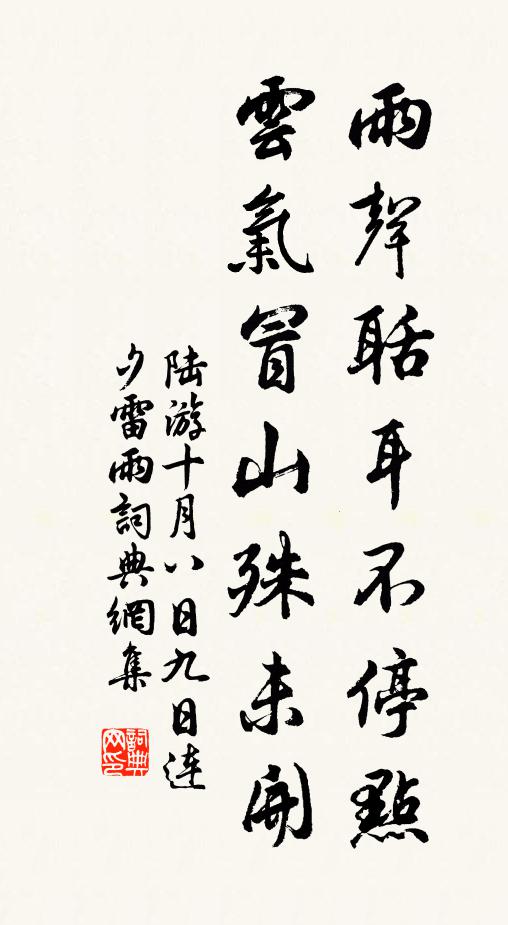 雨聲聒耳不停點
雲氣冒山殊未開
陆游十月八日九日连
夕雷雨詞典網集
詞典
网印